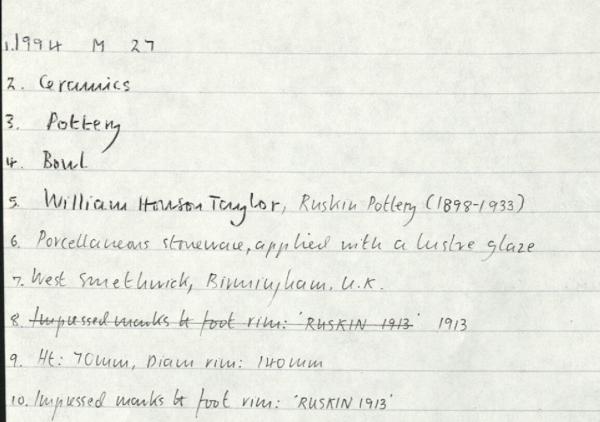 1. 1994 M 27
2. Ceramics
3. Pottery
4. Bowl
5. William Howson Taylor, Ruskin Pottery (1898-1933)
6. Porcellaneous stoneware, applied with a lustre glaze
7. West Smethwick, Birmingham, U.K.
8. Impressed marks to foot rim: 'RUSKIN 1913' 1913
9. Ht: 70mm, Diam rim: 140mm
10. Impressed marks to foot rim: 'RUSKIN 1913'